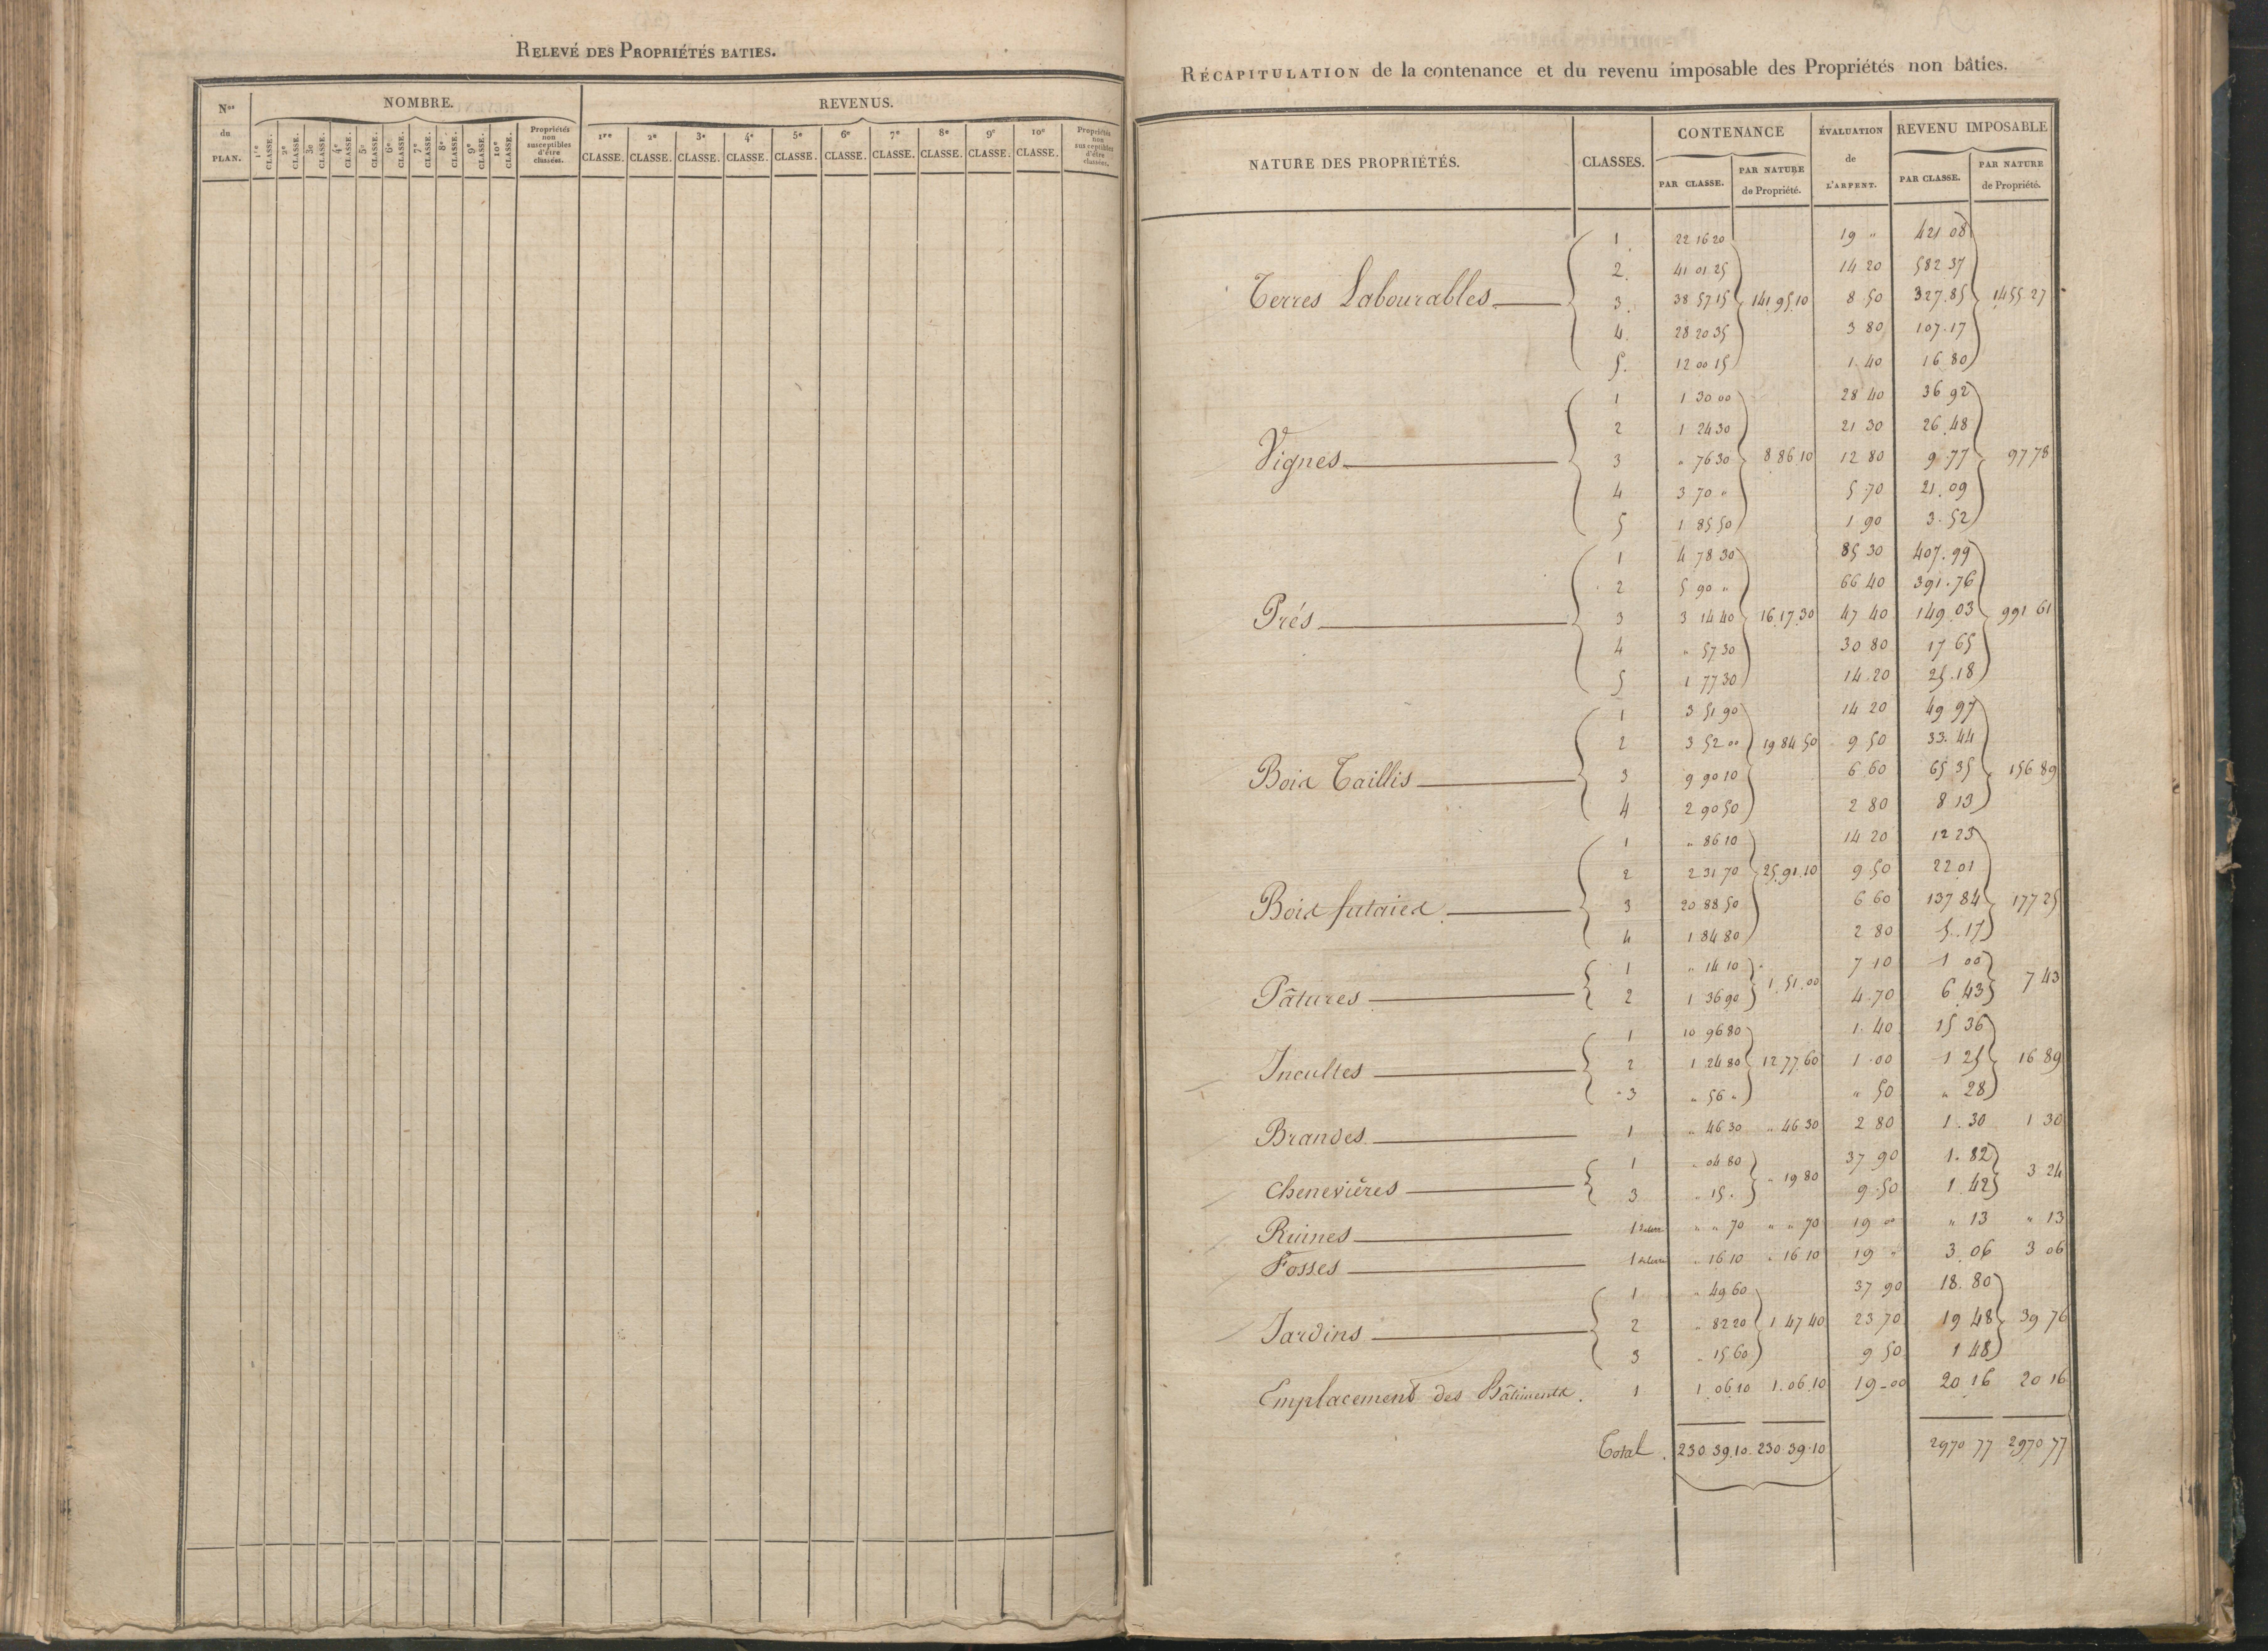 RELEVÉ DES PROPRIÉTÉS BATIES.
Nos du PLAN.
NOMBRE.
1re CLASSE. 2e CLASSE. 3e CLASSE. 4e CLASSE. 5e CLASSE. 6e CLASSE. 7e CLASSE. 8e CLASSE. 9e CLASSE. 10e CLASSE. Propriétés non susceptibles d'être classées.
REVENUS.
1re CLASSE. 2e CLASSE. 3e CLASSE. 4e CLASSE. 5e CLASSE. 6e CLASSE. 7e CLASSE. 8e CLASSE. 9e CLASSE. 10e CLASSE. Propriétés non susceptibles d'être classées.
RÉCAPITULATION de la contenance et du revenu imposable des Propriétés non bâties.
NATURE DES PROPRIÉTÉS. CLASSES. CONTENANCE ÉVALUATION de L'ARPENT. REVENU IMPOSABLE
PAR CLASSE. PAR NATURE de Propriété. PAR CLASSE. PAR NATURE de Propriété.
1. 22 16 20 19 " 421 08
2. 41 01 25 14 20 582 37
Terres Labourables 3. 38 57 15 141.95.10 8.50 327.85 1455.27
4. 28 20 35 3 80 107.17
5. 12 00 15 1.40 16 80
1 1 30 00 28 40 36 92
2 1 24 30 21 30 26.48
Vignes 3 " 76 30 8 86 10 12 80 9.77 97 78
4 3 70 " 5.70 21.09
5 1 85 50 1 90 3.52
1 4 78 30 85 30 407.99
2 5 90 " 66 40 391.76
Prés 3 3 14 40 16.17.30 47 40 149.03 991 61
4 " 57 30 30 80 17 65
5 1 77 30 14.20 25.18
1 3 51 90 14 20 49 97
2 3 52 00 19 84 50 9 50 33.44
Bois Taillis 3 9 90 10 6 60 65 35 156 89
4 2 90 50 2 80 8 13
1 " 86 10 14 20 12 23
2 2 31 70 25.91.10 9 50 22 01
Bois futaies 3 20 88 50 6 60 137 84 177 25
4 1 84 80 2 80 5.17
1 " 14 10 7 10 1 00
Pâtures 2 1 36 90 1.51.00 4.70 6.43 7 43
1 10 96 80 1.40 15 36
Incultes 2 1 24 80 12 77 60 1.00 1 25 16 89
3 " 56 " " 50 " 28
Brandes 1 " 46 30 " 46 30 2 80 1.30 1 30
1 " 04 80 37 90 1.82
Chenevières 3 " 15 " " 19 80 9.50 1.42 3 24
Ruines 1 " " 70 " " 70 19 00 " 13 " 13
Fosses 1 " 16 10 " 16 10 19 " 3.06 3 06
1 " 49 60 37 90 18.80
Jardins 2 " 82 20 1 47 40 23 70 19 48 39 76
3 " 15 60 9 50 1 48
Emplacement des Bâtiments. 1 1.06.10 1.06.10 19-00 20 16 20 16
Total. 230 39.10 230.39.10 2970 77 2970 77